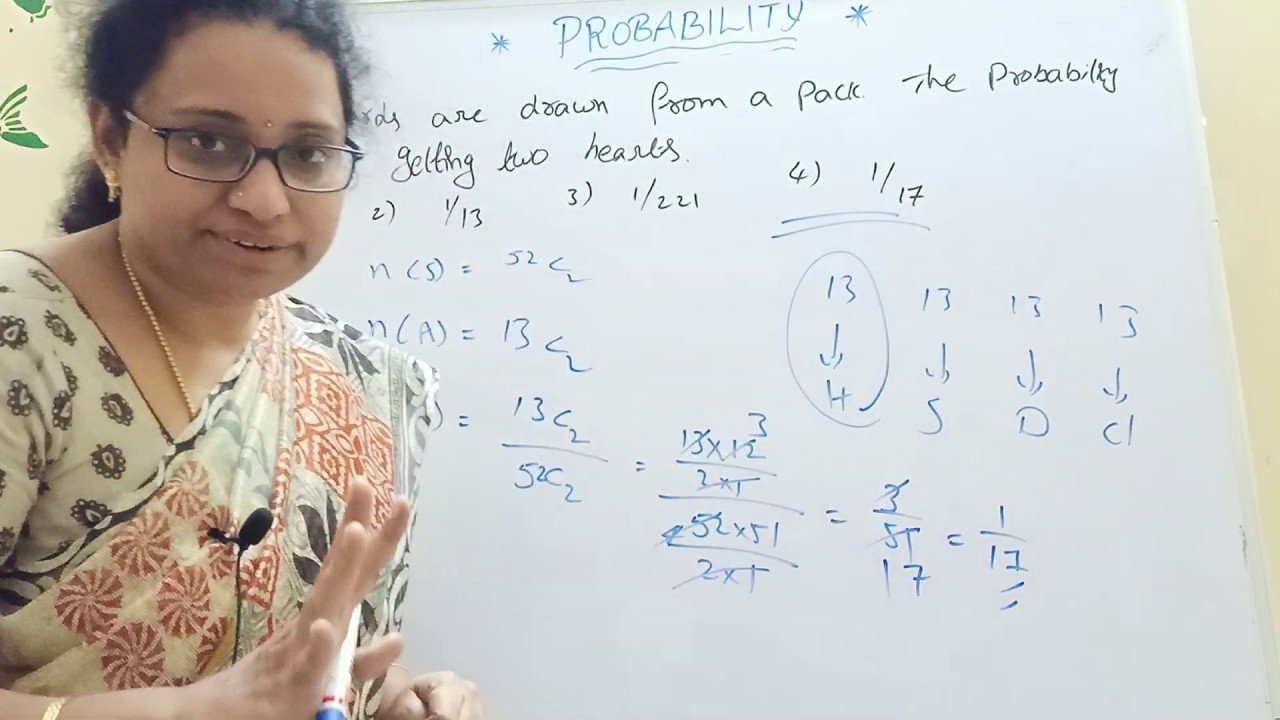 * PROBABILITY *
rds are drawn from a Pack. The Probability
getting two hearts.
2) 1/13 3) 1/221 4) 1/17
n(S) = 52C2
n(A) = 13C2
) = 13C2/52C2 = 13x12 3/2x1 / 4 52x51/2x1 = 3/51 17 = 1/17
13 13 13 13
H S D Cl